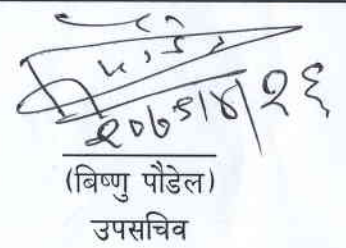 २०७९।४।२६
(बिष्णु पौडेल)
उपसचिव